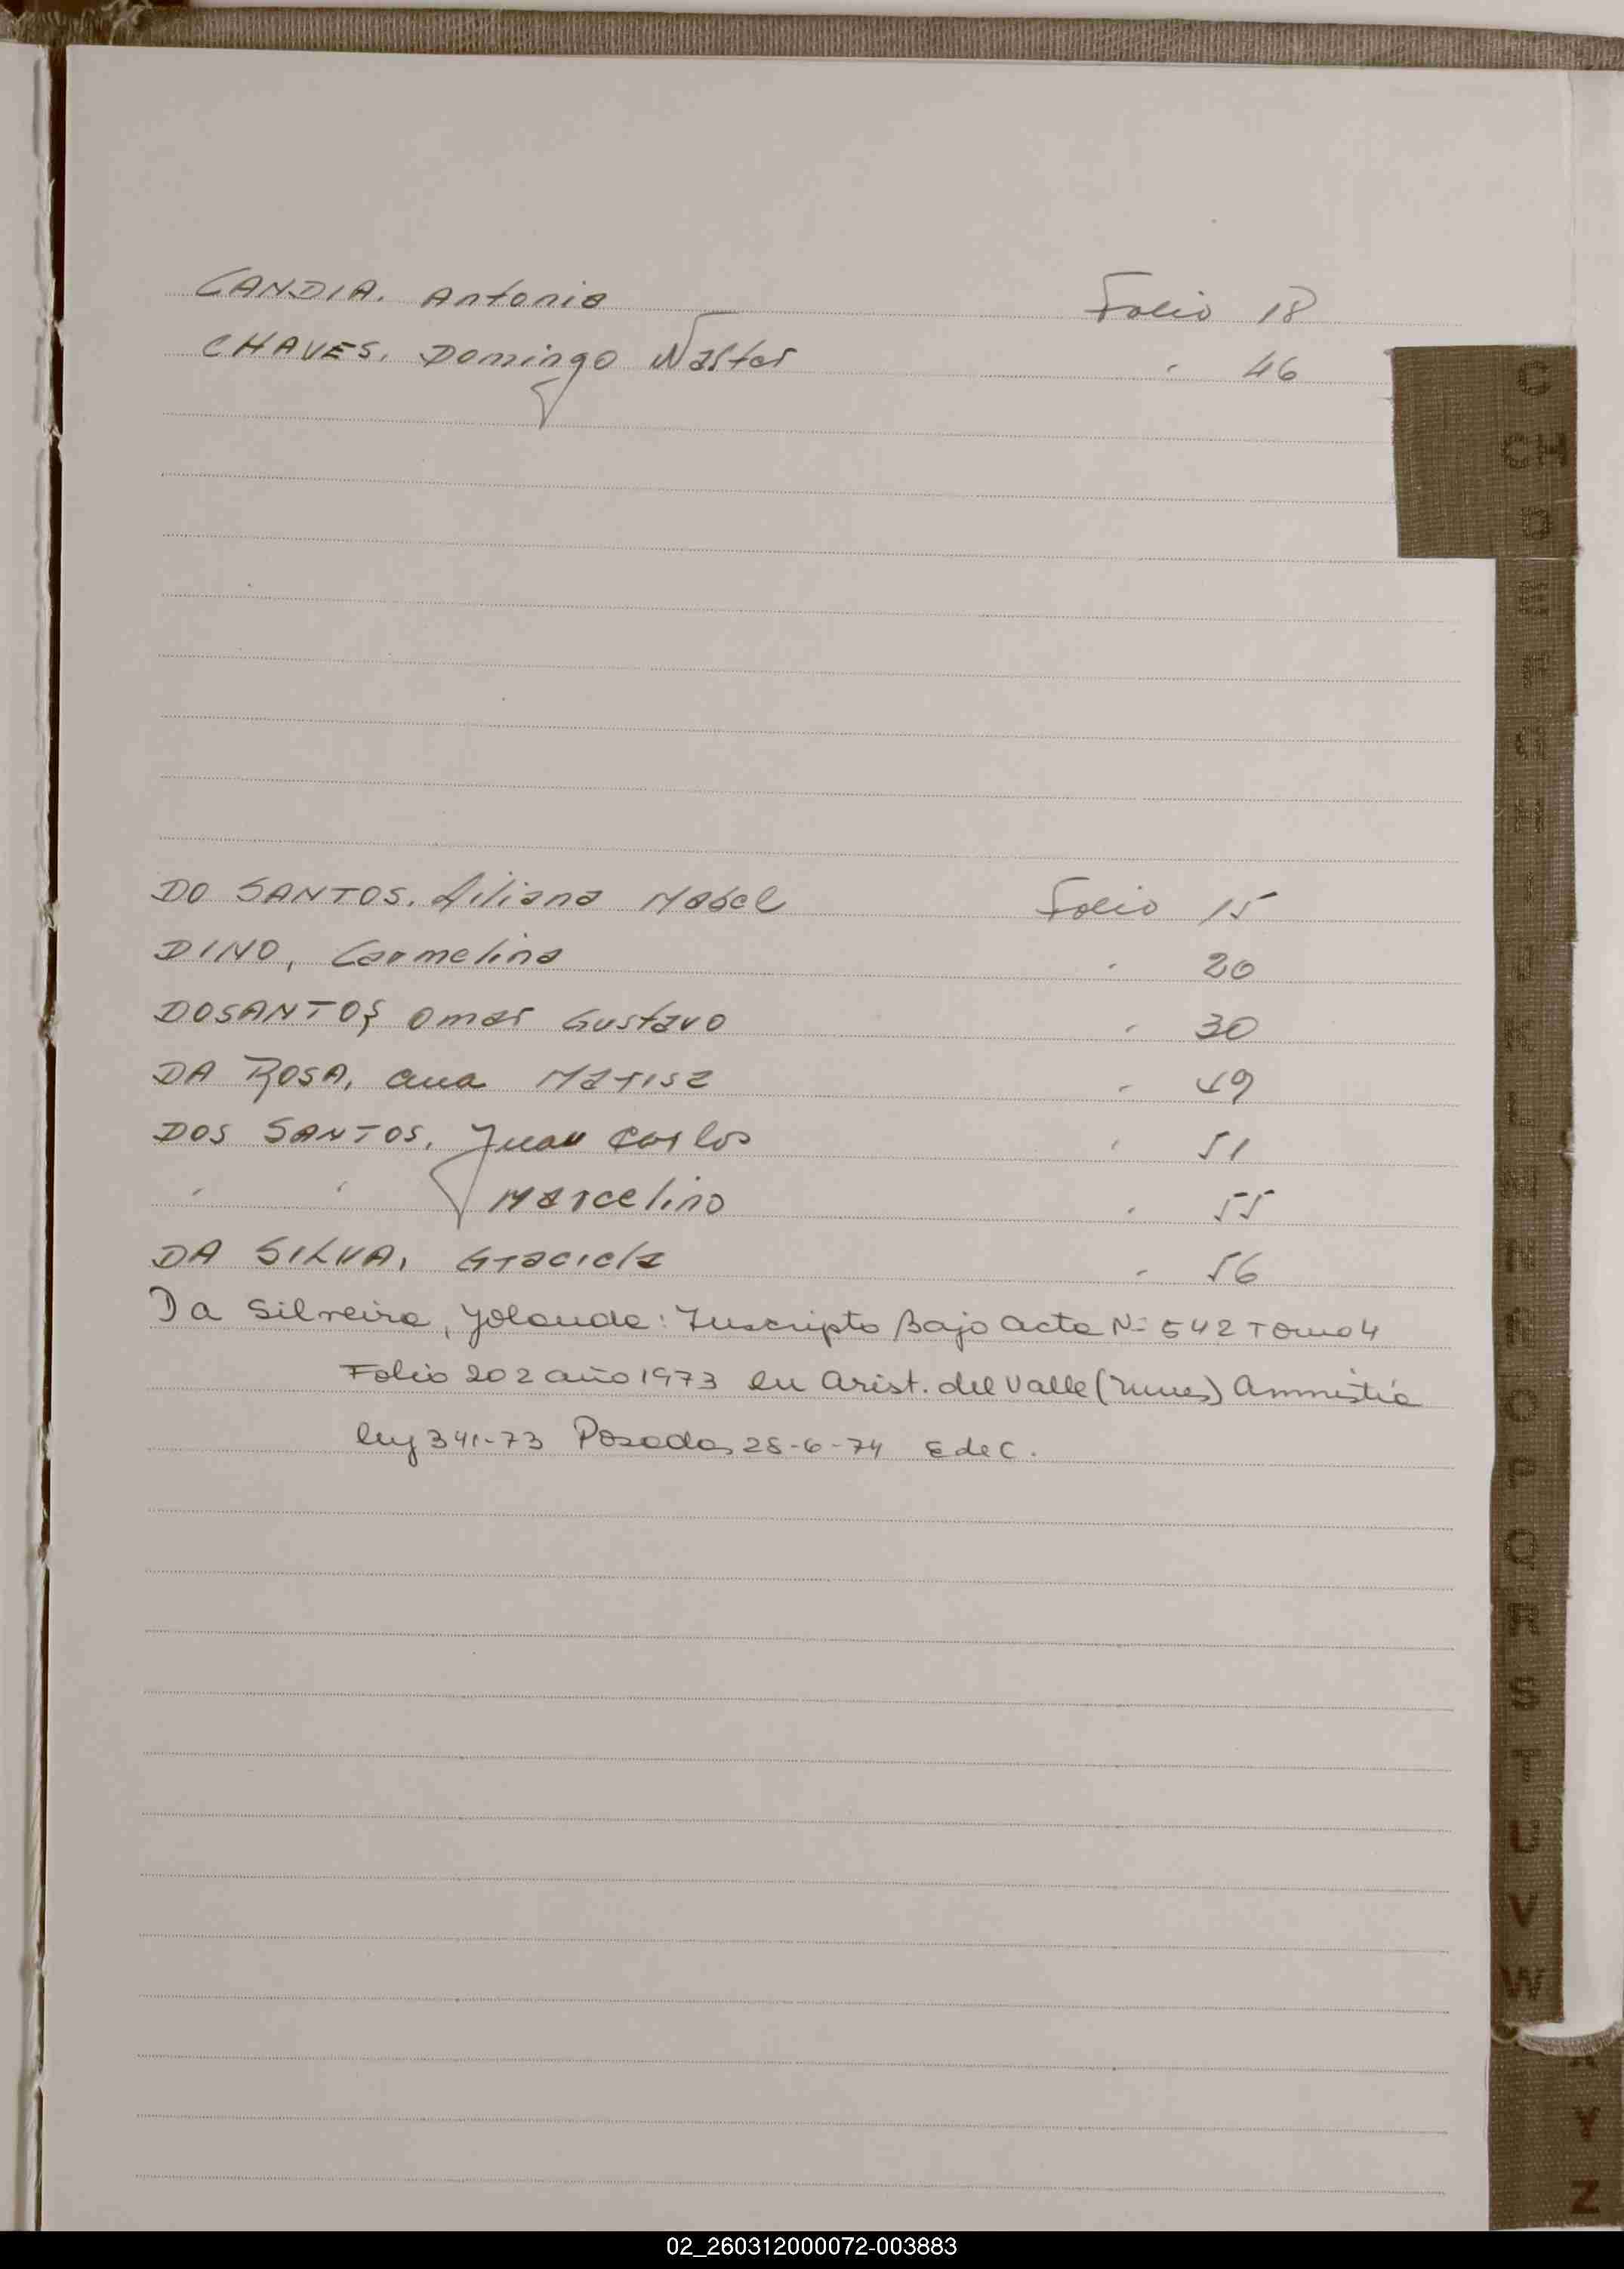 CANDIA. Antonia Folio 18
CHAVES. Domingo Walter " 46
DO SANTOS. Liliana Mabel Folio 15
DINO, Carmelina " 20
DOSANTOS, Omar Gustavo " 30
DA ROSA, Ana Marisa " 49
DOS SANTOS. Juan Carlos " 51
" " Marcelino " 55
DA SILVA, Graciela " 56
Da Silveira, Yolanda: Inscripto Bajo acta Nº 542 Tomo 4
Folio 202 año 1973 en Arist. del Valle (Mnes) Amnistia
ley 341-73 Posadas 28-6-74 E de C.
C
CH
D
E
F
G
H
I
J
K
L
M
N
Ñ
O
P
Q
R
S
T
U
V
W
X
Y
Z
02_260312000072-003883